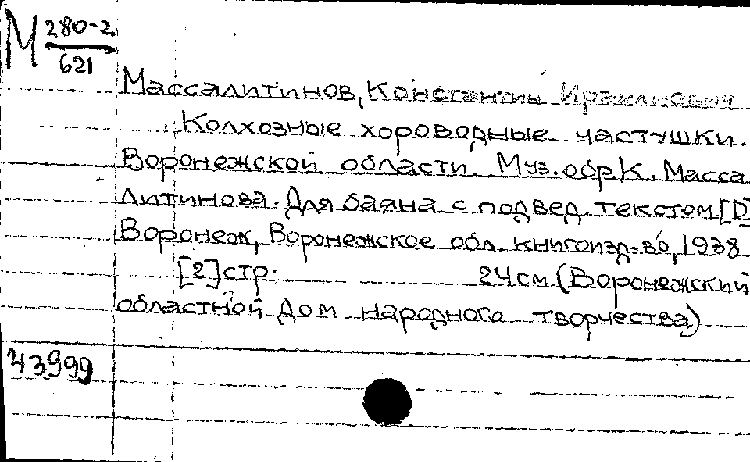 М 280-2
621
Массалитинов, Константин Ираклиевич
Колхозные хороводные частушки.
Воронежской области. Муз. обр К. Масса
литинова. Для баяна с подвед. текстом [D]
Воронеж, Воронежское обл. книгоизд-во, 1938
[2] стр. 24 см (Воронежский
областной Дом народного творчества)
43999